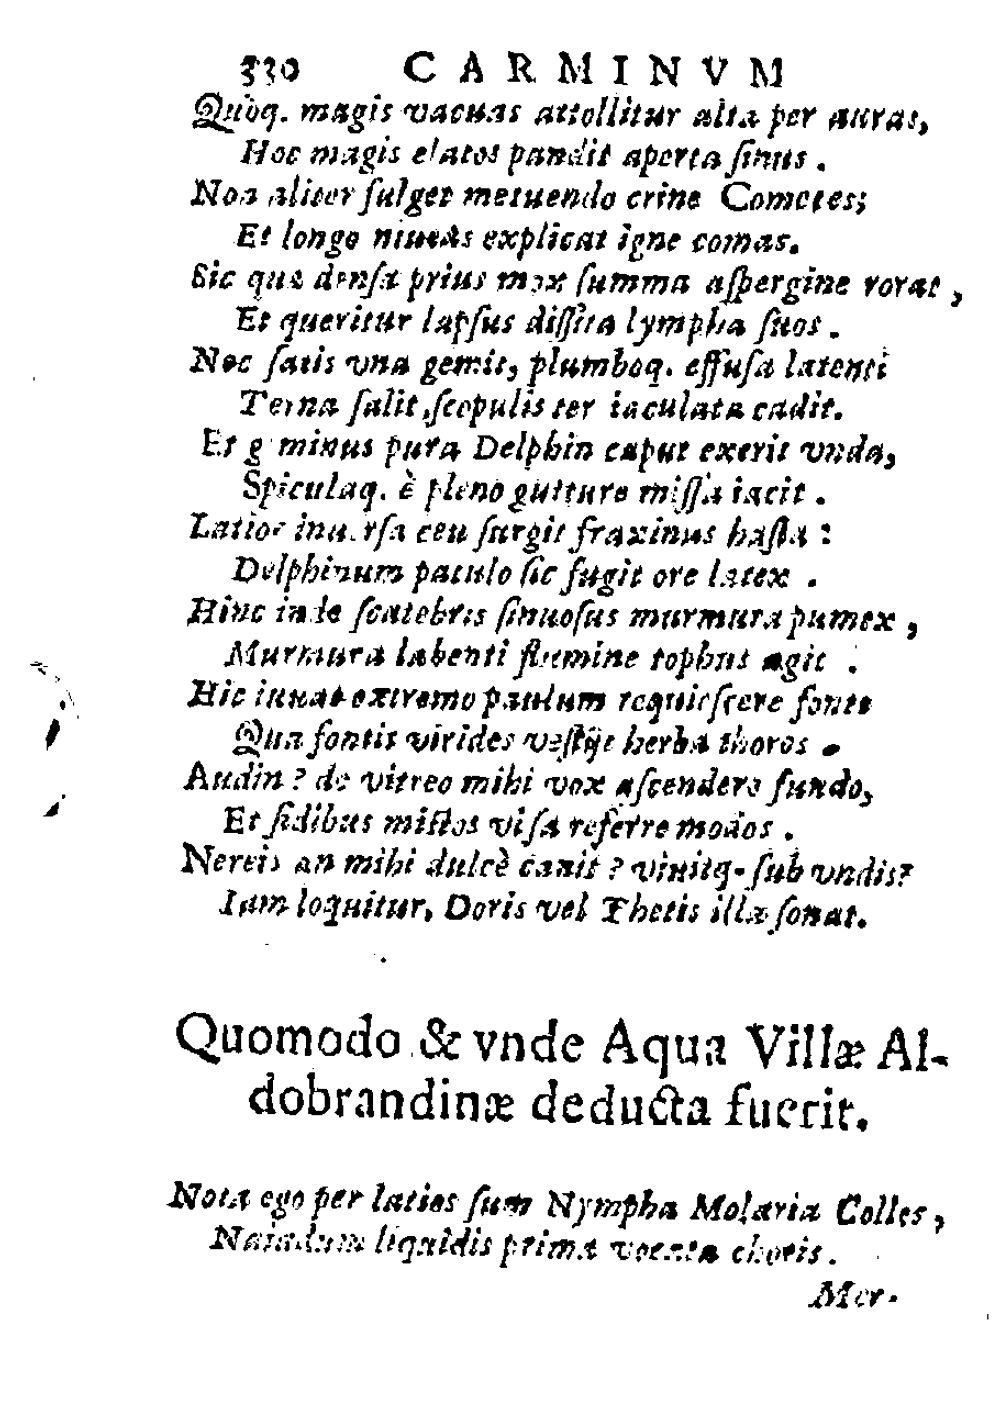 330 CARMINVM
Quòq. magis vacuas attollitur alta per auras,
Hoc magis elatos pandit aperta ſinus.
Non aliter fulget metuendo crine Cometes;
Et longo niueas explicat igne comas.
Sic quæ denſa prius mox ſumma aſpergine rorat,
Et queritur lapſus diſſita lympha ſuos.
Nec ſatis vna gemit, plumboq. effuſa latenti
Terna ſalit, ſcopulis ter iaculata cadit.
Et g minus pura Delphin caput exerit vnda,
Spiculaq. è pleno gutture miſſa iacit.
Latior inuerſa ceu ſurgit fraxinus haſta:
Delphinum patulo ſic fugit ore latex.
Hinc inde ſcatebris ſinuoſus murmura pumex,
Murmura labenti flumine tophus agit.
Hic iuuat extremo paulum requieſcere fonte
Qua fontis virides veſtijt herba thoros.
Audin? de vitreo mihi vox aſcendere fundo,
Et fidibus miſtos viſa referre modos.
Nereis an mihi dulcè canit? viuitq. ſub vndis?
Iam loquitur, Doris vel Thetis illæ ſonat.
Quomodo & vnde Aqua Villæ Al-
dobrandinæ deducta fuerit.
Nota ego per latios ſum Nympha Molaria Colles,
Naiadum liquidis prima vocata choris.
Mer-